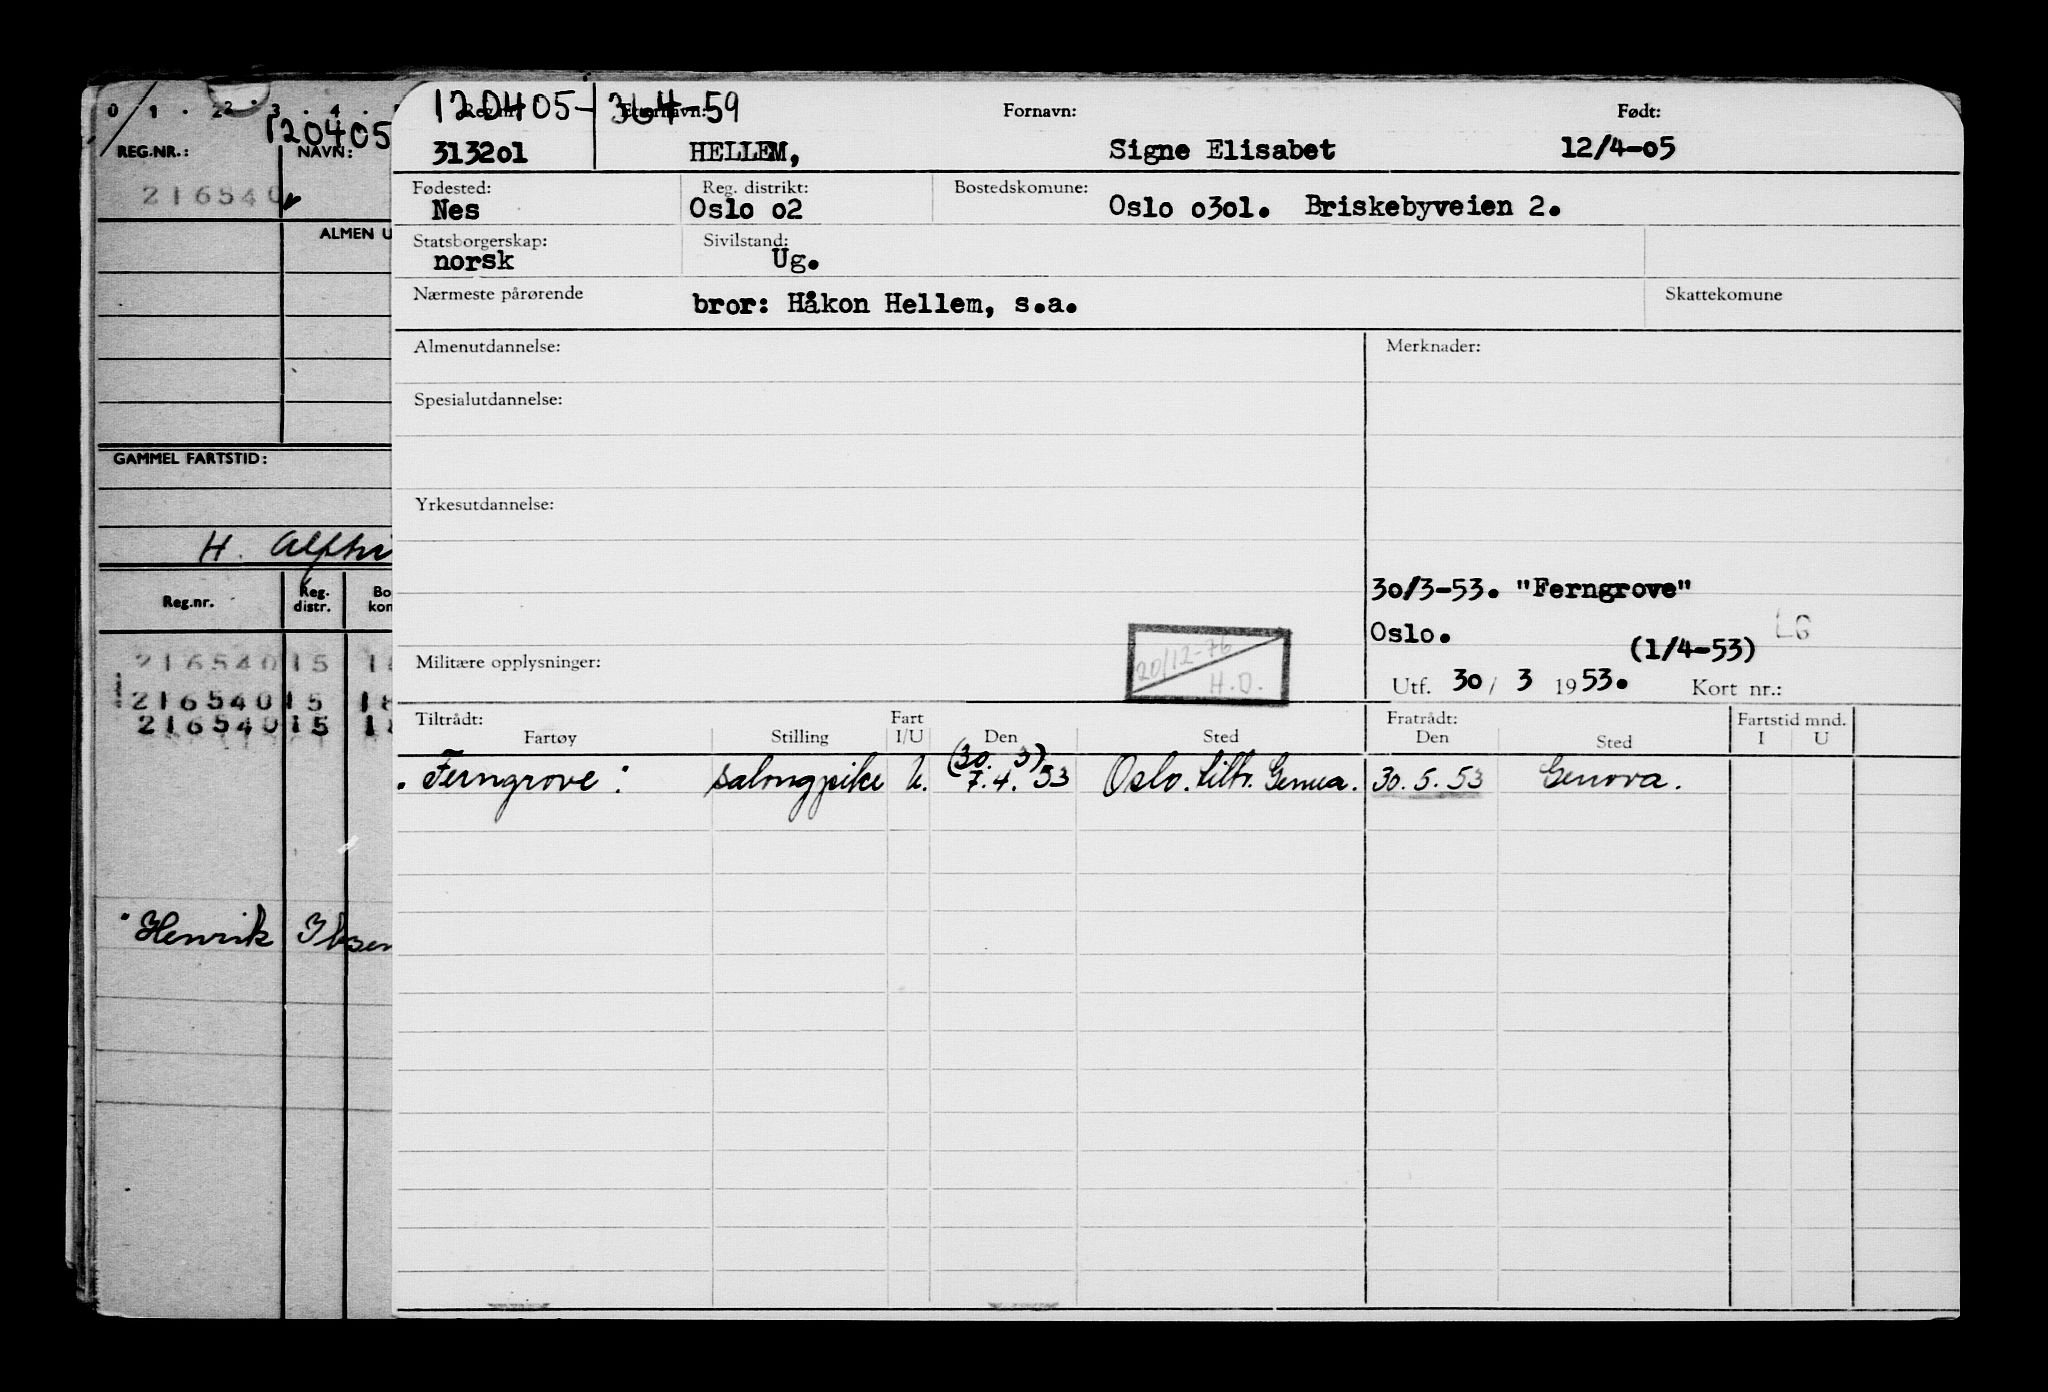 0 1 . 2 2 . 3 . 4 .
120405
REG.NR.: NAVN:
216540
ALMEN U
GAMMEL FARTSTID:
H.
Reg.nr. Reg. distr. Bo kon
216540 15 1
216540 15 18
216540 15 18
"Henrik Ibsen
120405-36449-59
Reg.nr. Etternavn: Fornavn: Født:
313201 HELLEM, Signe Elisabet 12/4-05
Fødested: Reg. distrikt: Bostedskomune:
Nes Oslo 02 Oslo 0301. Briskebyveien 2.
Statsborgerskap: Sivilstand:
norsk Ug.
Nærmeste pårørende bror: Håkon Hellem, s.a. Skattekomune
Almenutdannelse: Merknader:
Spesialutdannelse:
Yrkesutdannelse:
30/3-53. "Ferngrove"
Oslo. LG
(1/4-53)
Militære opplysninger: 20/12-76 H.O.
Utf. 30 / 3 1953. Kort nr.:
Tiltrådt: Fart Fratrådt: Fartstid mnd.
Fartøy Stilling I/U Den Sted Den Sted I U
(30. 3)
"Ferngrove" salongpike U. 7.4.53 Oslo. tiltr. Genua. 30.5.53 Genova.